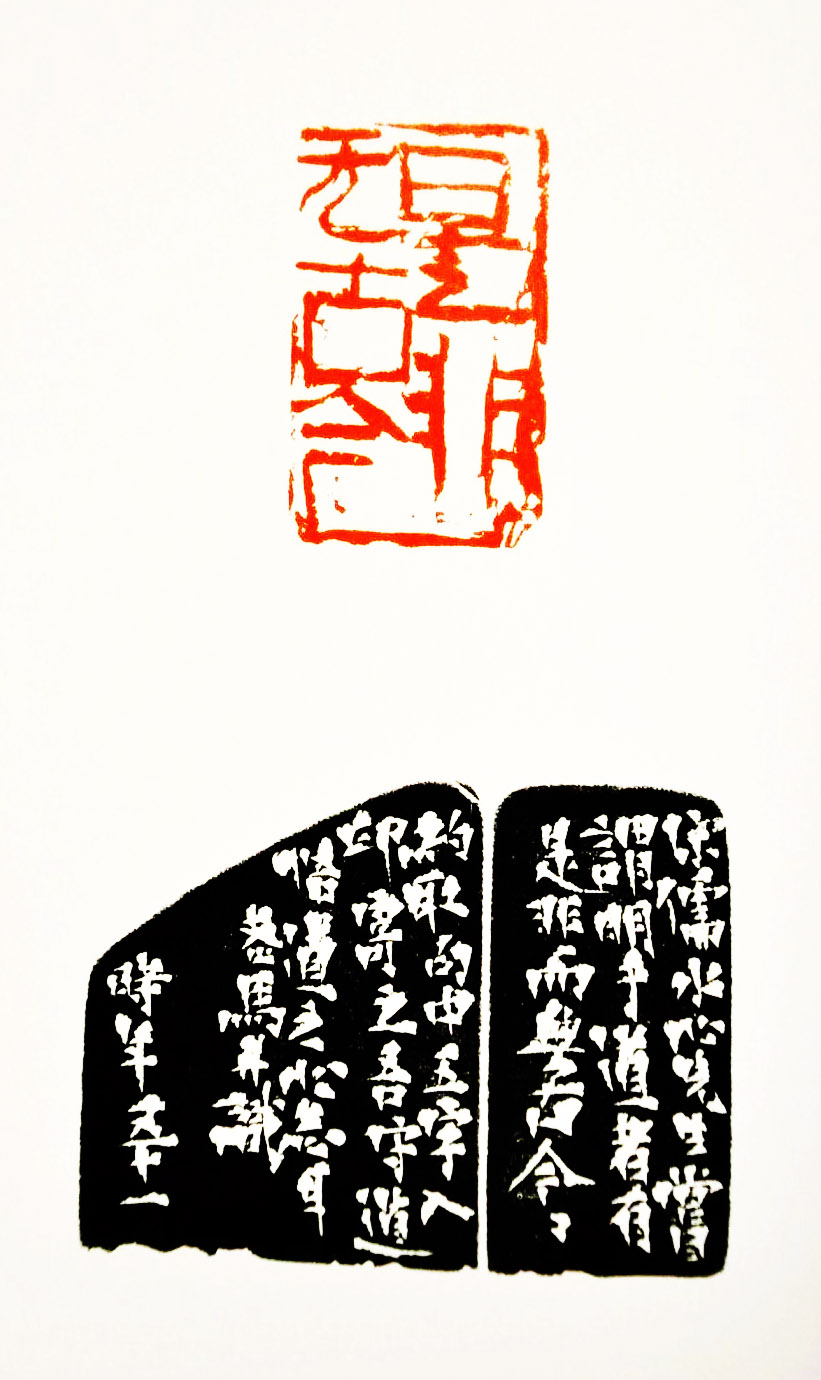 是非
无古今
宋儒水心先生嘗
謂明乎道者有
是非而無古今々
約取句中五字入
印寄之吾守道
悟道之心志耳
馬并識
時年六十一